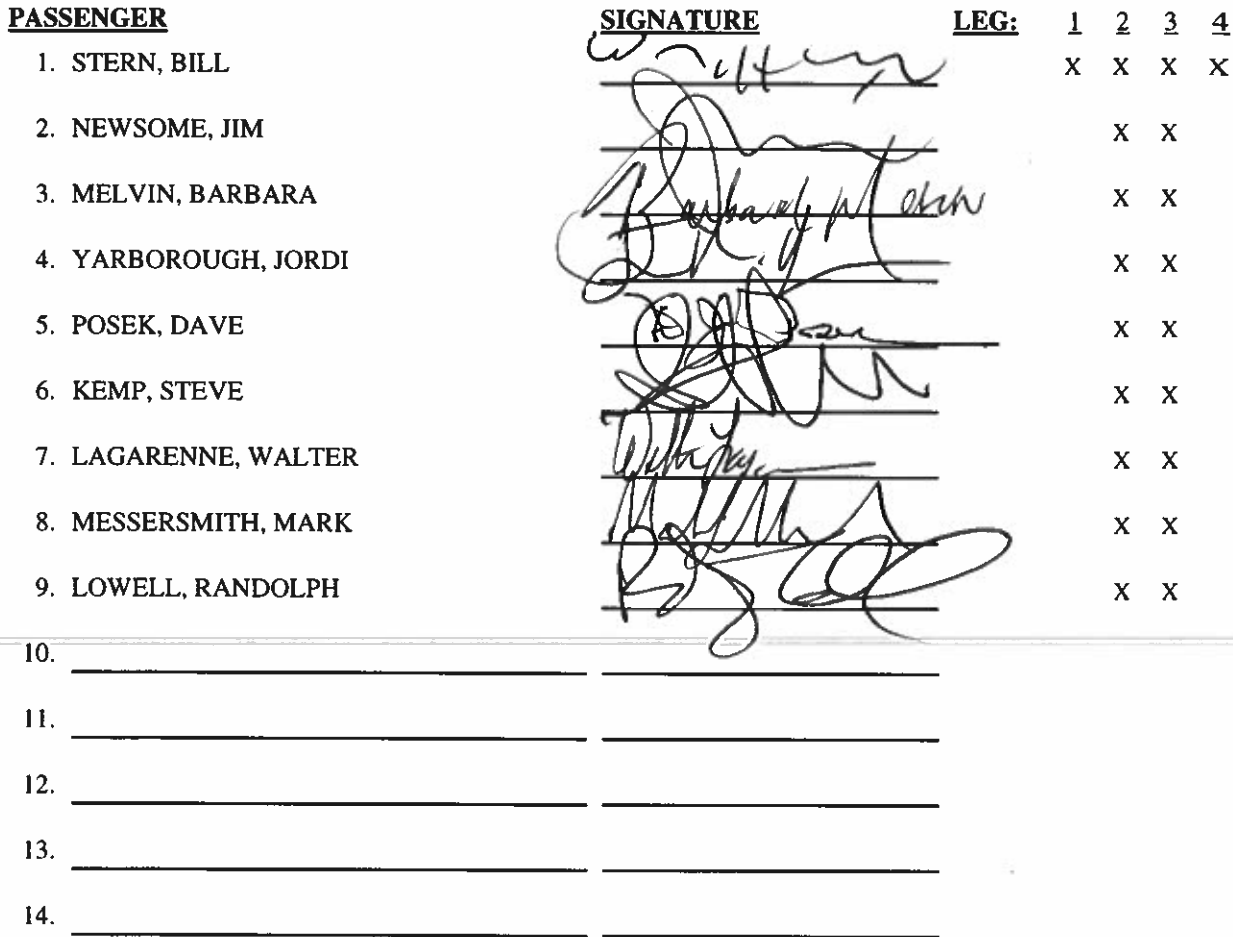 PASSENGER SIGNATURE LEG: 1 2 3 4
1. STERN, BILL X X X X
2. NEWSOME, JIM X X
3. MELVIN, BARBARA Barbara Melvin X X
4. YARBOROUGH, JORDI X X
5. POSEK, DAVE X X
6. KEMP, STEVE X X
7. LAGARENNE, WALTER X X
8. MESSERSMITH, MARK X X
9. LOWELL, RANDOLPH X X
10.
11.
12.
13.
14.